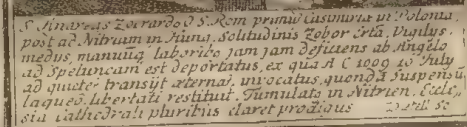 S. Zoerardo O S. Rom primu Casimiria in Polonia,
post ad Nitriam in Hung, Solitudinis Zobor Erta, Vigilys,
medus, manuuq laboribq jam jam deficiens ab Angelo
ad Speluncam est deportatus, ex qua A C 1009 16 July
ad quiete transijt æternā, invocatus, quendā Suspensū
laqueo, libertati restituit. Tumulatq in Nitrien. Eccle
sia Cathedrali pluribus claret prodigijs